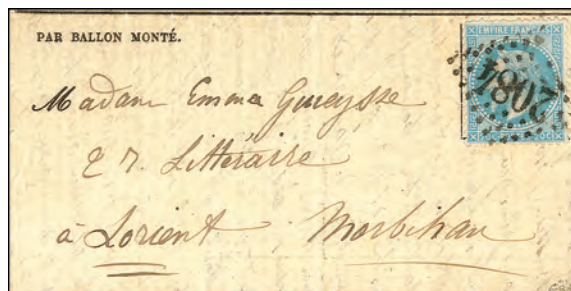 PAR BALLON MONTÉ.
EMPIRE FRANÇAIS
2084
Madame Emma Guieysse
2 r. Littéraire
à Lorient Morbihan